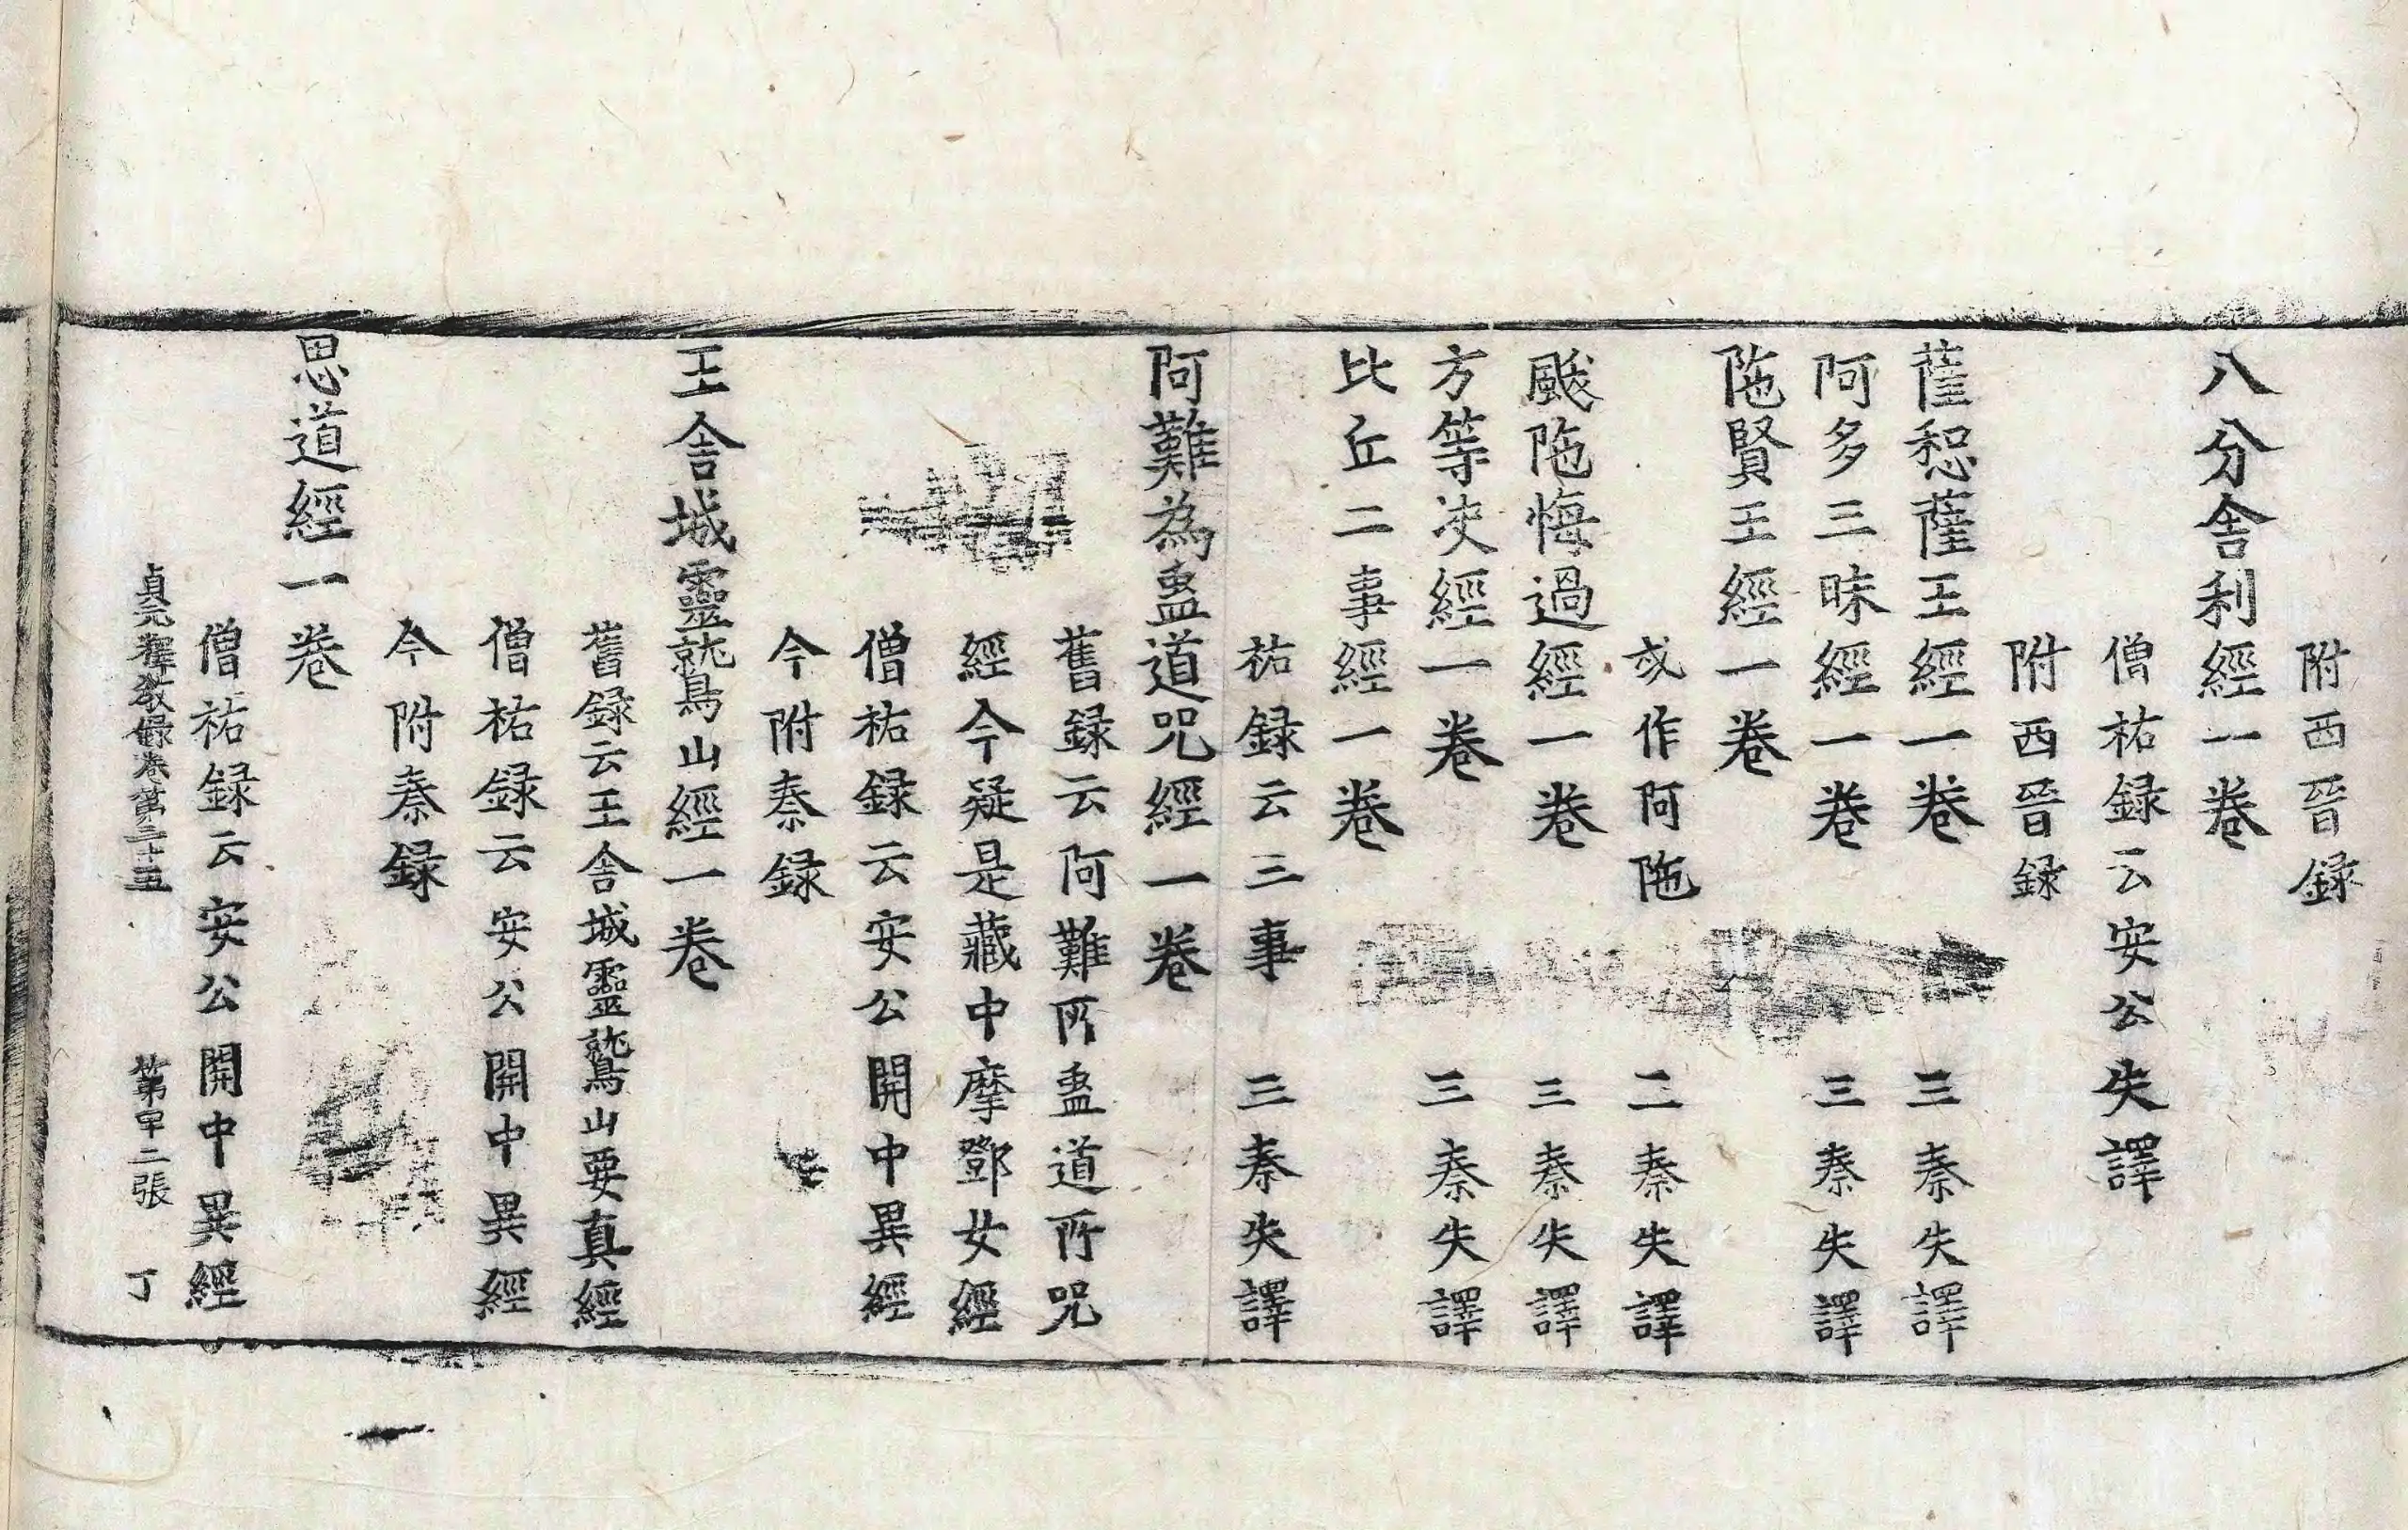 附西晉録
八分舎利經一卷
僧祐録云安公失譯
附西晉録
薩惒薩王經一卷　三秦失譯
阿多三昧經一卷　三秦失譯
陁賢王經一卷
或作阿陁　二秦失譯
颰陁悔過經一卷　三秦失譯
方等决經一卷　三秦失譯
比丘二事經一卷
祐録云三事　三秦失譯
阿難為蠱道呪經一卷
舊録云阿難所蠱道所呪
經今疑是藏中摩鄧女經
僧祐録云安公開中異經
今附秦録
王舎城靈鷲山經一卷
舊録云王舎城靈鷲山要真經
僧祐録云安公開中異經
今附秦録
思道經一卷
僧祐録云安公開中異經
貞元釋教録卷第二十五　第四十二張　丁